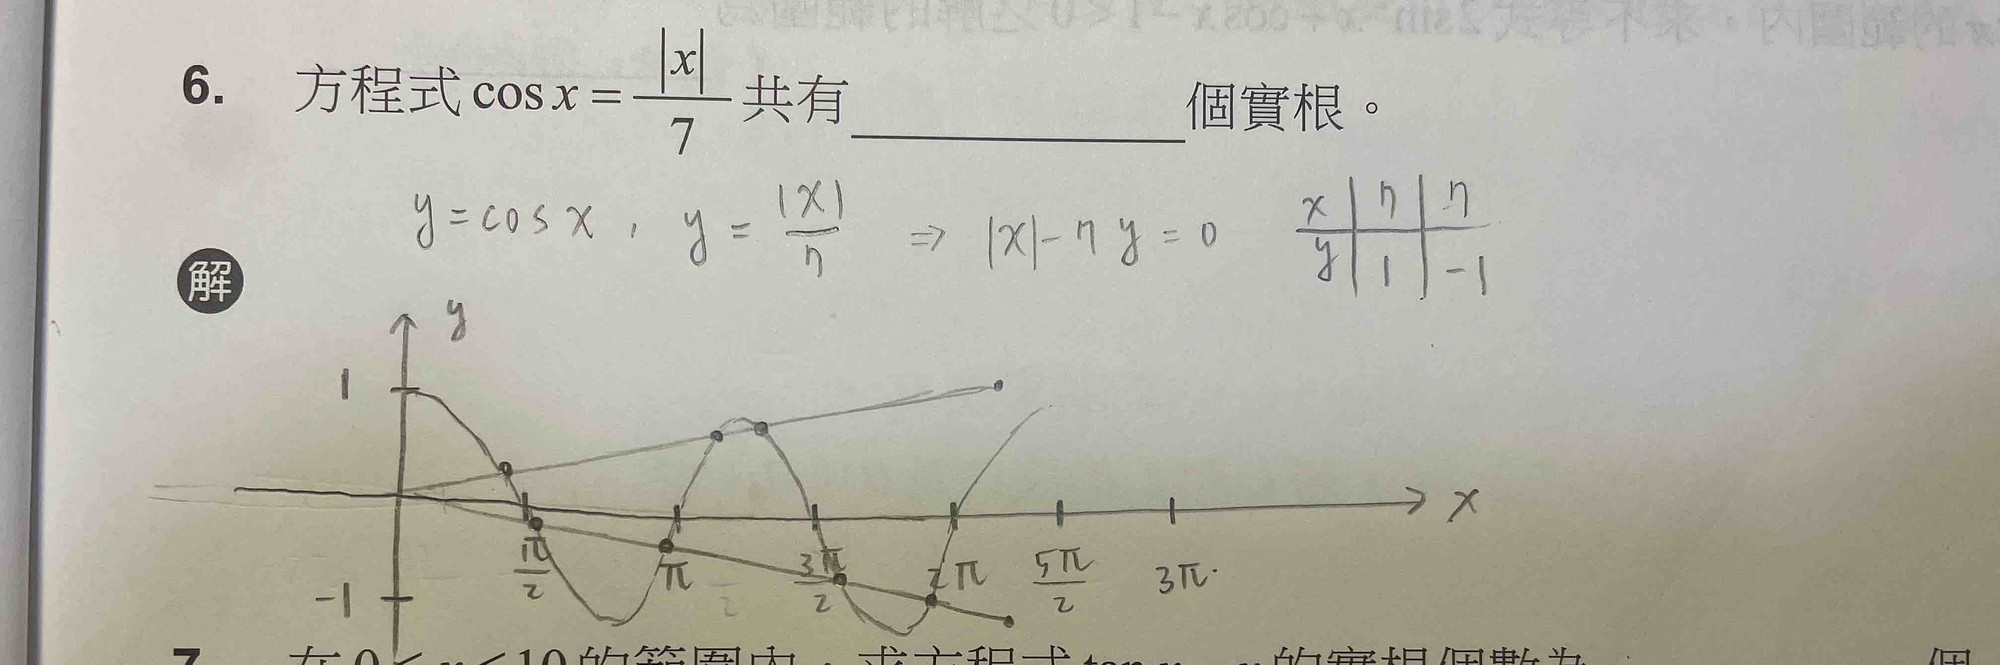 6. 方程式 cos x = |x|/7 共有________個實根。
y = cos x , y = |x|/7 ⇒ |x| - 7y = 0 x | 7 | 7
y | 1 | -1
解
y
1
x
π/2 π 3π/2 2π 5π/2 3π
-1
7. 在 0 ≤ x ≤ 10 的範圍內，求方程式 tan x = x 的實根個數為 個